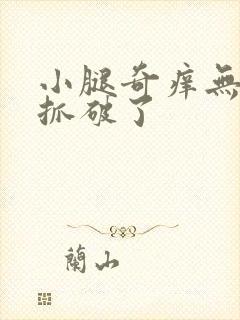 小腿奇痒無
抓破了
蘭山